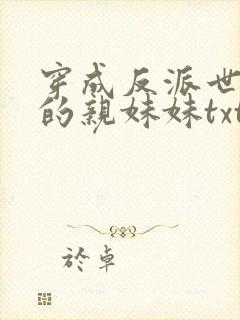 穿成反派世
的親妹妹txt
於卓